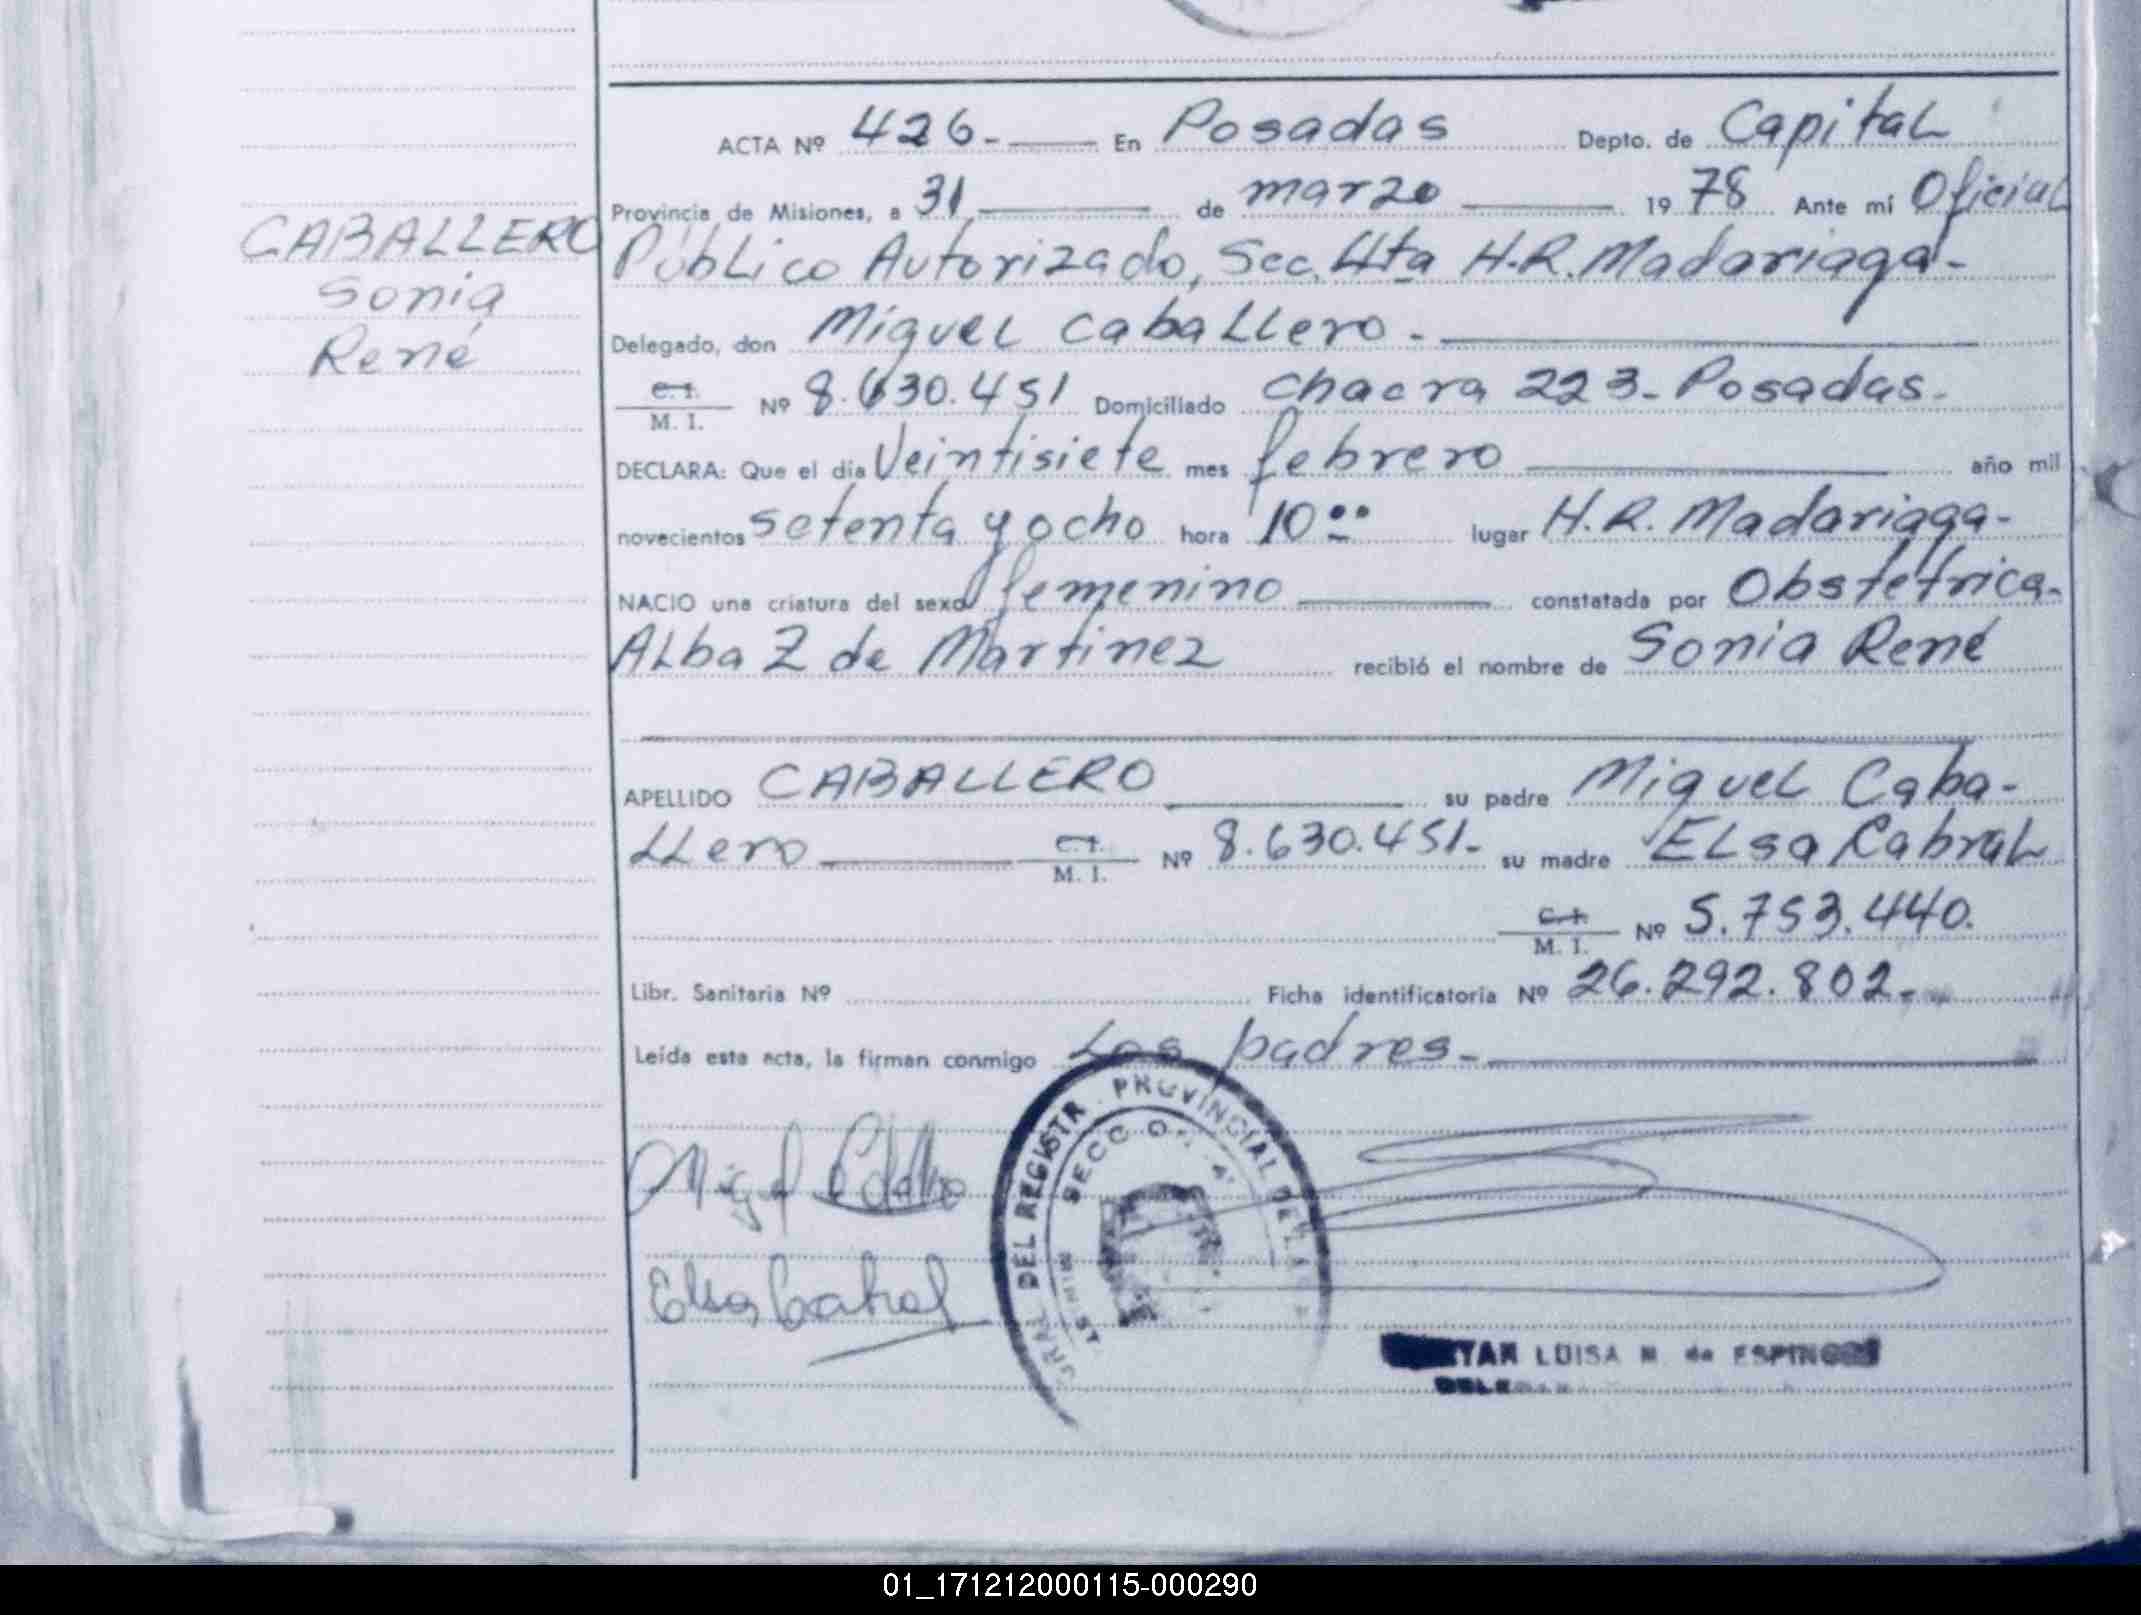 CABALLERO
Sonia
René
ACTA Nº 426.- En Posadas Depto. de Capital
Provincia de Misiones, a 31 de marzo 1978 Ante mí Oficial
Público Autorizado, Sec. 4ta H.R. Madariaga-
Delegado, don Miguel Caballero.-
C. I.
M. I. Nº 8.630.451 Domiciliado Chacra 223- Posadas.
DECLARA: Que el día Veintisiete mes febrero año mil
novecientos setenta y ocho hora 10:00 lugar H.R. Madariaga-
NACIO una criatura del sexo femenino constatada por Obstétrica-
Alba Z de Martinez recibió el nombre de Sonia René
APELLIDO CABALLERO su padre Miguel Caba-
llero C. I. M. I. Nº 8.630.451- su madre Elsa Cabral
C. I.
M. I. Nº 5.753.440.
Libr. Sanitaria Nº Ficha identificatoria Nº 26.292.802.-
Leída esta acta, la firman conmigo Los padres-
DEL REGISTR PROVINCIAL DE LA
SECC ON 4ª
Elsa Cabral
LUISA M. de
01_171212000115-000290